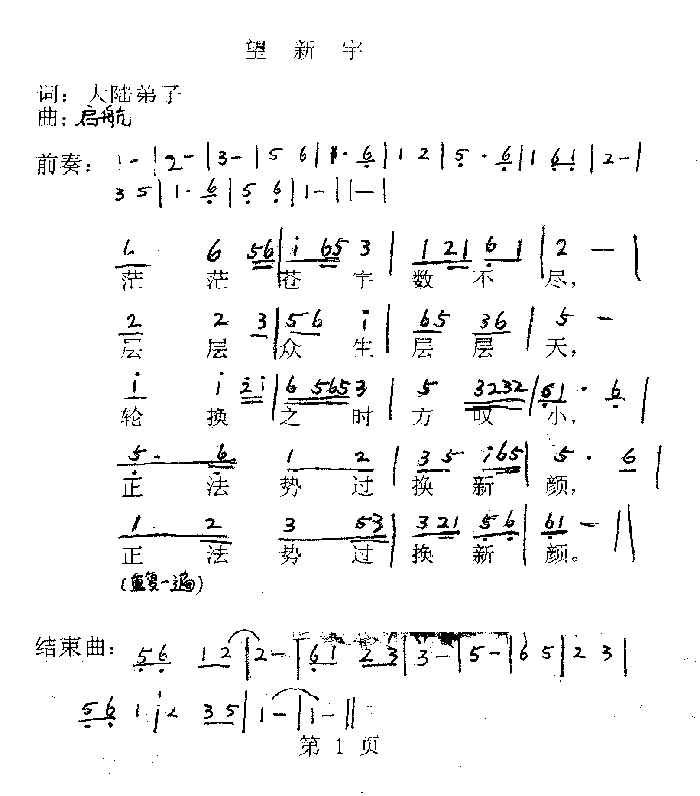 望 新 宇
词：大陆弟子
曲：启航
前奏： 1 - | 2 - | 3 - | 5 6 | 1 · 6 | 1 2 | 5 · 6 | 1 6 1 | 2 - |
3 5 | 1 · 6 | 5 6 | 1 - | 1 - |
6 6 56 | i 65 3 | 1 21 6 1 | 2 — |
茫 茫 苍 宇 数 不 尽，
2 2 3 | 56 i | 65 36 | 5 —
层 层 众 生 层 层 天，
i i 2i | 6 565 3 | 5 3232 | 61 · 6 |
轮 换 之 时 方 叹 小，
5 · 6 1 2 | 35 i65 | 5 · 6 |
正 法 势 过 换 新 颜，
1 2 3 53 | 321 56 | 61 — ||
正 法 势 过 换 新 颜。
(重复一遍)
结束曲： 56 12 | 2 - | 61 23 | 3 - | 5 - | 6 5 | 2 3 |
56 1 | 2 35 | 1 - | 1 - ||
第 1 页